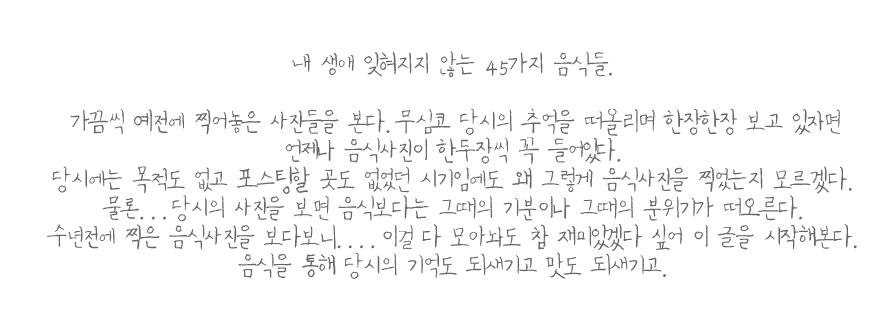 내 생애 잊혀지지 않는 45가지 음식들.
가끔씩 예전에 찍어놓은 사진들을 본다. 무심코 당시의 추억을 떠올리며 한장한장 보고 있자면
언제나 음식사진이 한두장씩 꼭 들어있다.
당시에는 목적도 없고 포스팅할 곳도 없었던 시기임에도 왜 그렇게 음식사진을 찍었는지 모르겠다.
물론... 당시의 사진을 보면 음식보다는 그때의 기분이나 그때의 분위기가 떠오른다.
수년전에 찍은 음식사진을 보다보니.... 이걸 다 모아놔도 참 재미있겠다 싶어 이 글을 시작해본다.
음식을 통해 당시의 기억도 되새기고 맛도 되새기고.